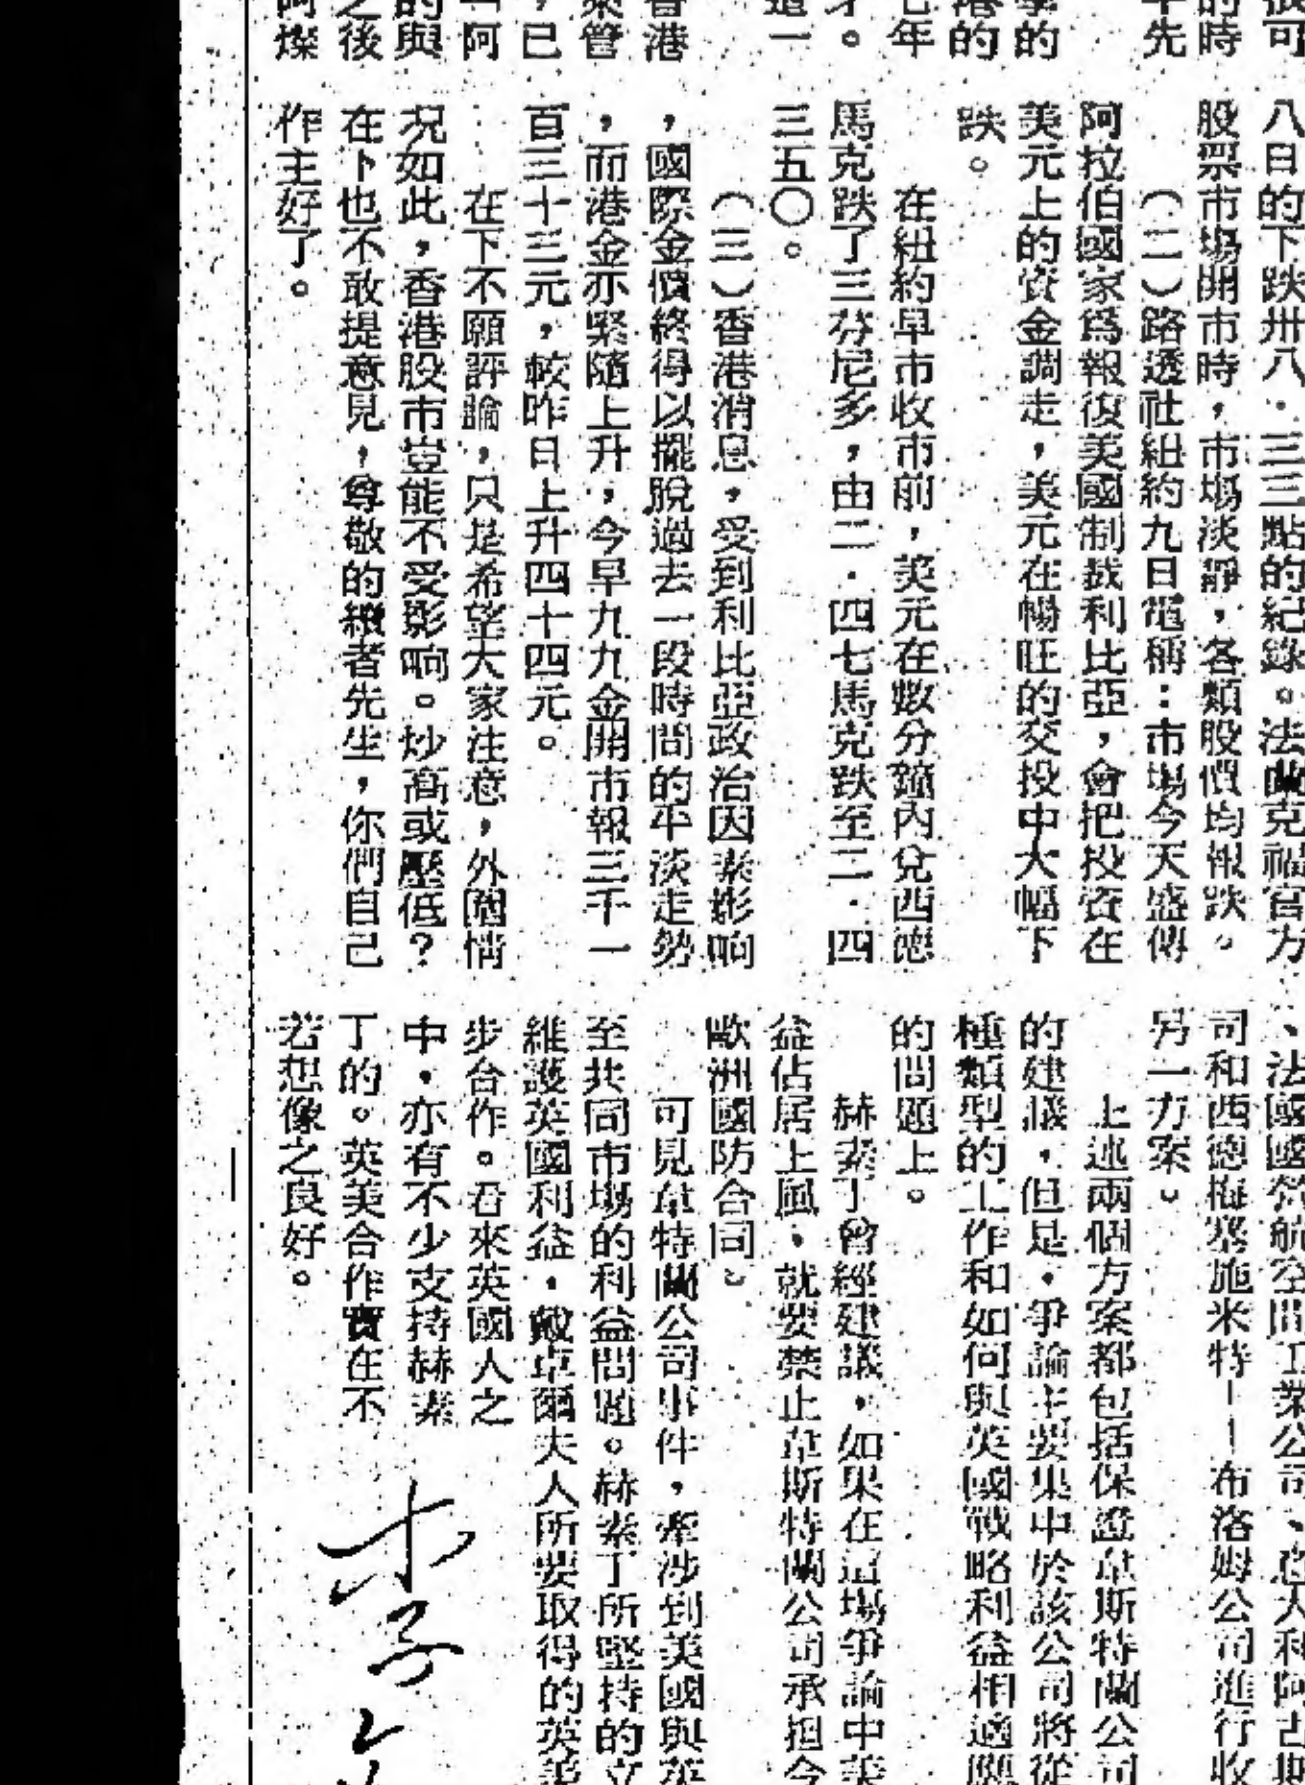 很可
的時
年先
學的
港的
七年
才。
這一
香港
業管
，已
「阿
的與
之後
阿燦
八日的下跌卅八．三三點的紀錄。法蘭克福官方
股票市場開市時，市場淡靜，各類股價均報跌。
（二）路透社紐約九日電稱：市場今天盛傳
阿拉伯國家爲報復美國制裁利比亞，會把投資在
美元上的資金調走，美元在暢旺的交投中大幅下
跌。
在紐約早市收市前，美元在數分鐘內兌西德
馬克跌了三芬尼多，由二．四七馬克跌至二．四
三五〇。
（三）香港消息，受到利比亞政治因素影响
，國際金價終得以擺脫過去一段時間的平淡走勢
，而港金亦緊隨上升，今早九九金開市報三千一
百三十三元，較昨日上升四十四元。
在下不願評論，只是希望大家注意，外圍情
況如此，香港股市豈能不受影响。炒高或壓低？
在下也不敢提意見，尊敬的讀者先生，你們自己
作主好了。
、法國國營航空間工業公司、意大利阿古斯
司和西德梅塞施米特——布洛姆公司進行收
另一方案。
上述兩個方案都包括保證韋斯特蘭公司
的建議，但是，爭論主要集中於該公司將從
種類型的工作和如何與英國戰略利益相適應
的問題上。
赫素丁曾經建議，如果在這場爭論中美
益佔居上風，就要禁止韋斯特蘭公司承担今
歐洲國防合同。
可見韋特蘭公司事件，牽涉到美國與英
至共同市場的利益問題。赫素丁所堅持的立
維護英國利益，戴卓爾夫人所要取得的英美
步合作。看來英國人之
中，亦有不少支持赫素
丁的。英美合作實在不
若想像之良好。
李